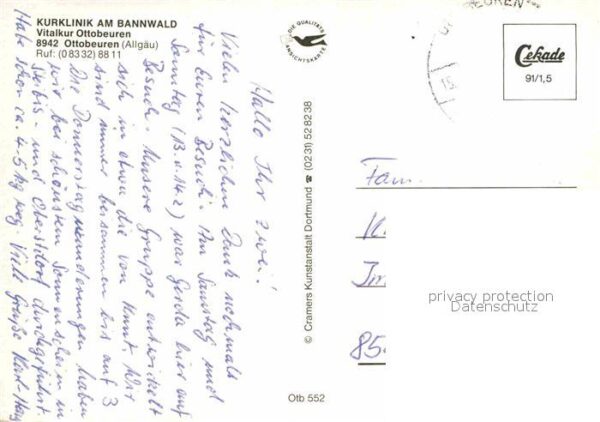 KURKLINIK AM BANNWALD
Vitalkur Ottobeuren
8942 Ottobeuren (Allgäu)
Ruf: (08332) 8811
Hallo Ihr zwei!
Vielen herzlichen Dank nochmals
für Euren Besuch. Am Samstag und
Sonntag (13. u. 14.2) war Gerda hier auf
Besuch. Unsere Gruppe entwickelt
sich in etwa die von Kunst. Wir
sind immer beisammen bis auf 3
Die Donnerstagwanderungen haben
wir bei schönstem Sonnenschein in
Steibis- und Oberstdorf durchgeführt
Habe schon ca. 4-5 kg weg. Viele Grüße Karl-
DIE QUALITÄTS
ANSICHTSKARTE
© Cramers Kunstanstalt Dortmund ☎ (0231) 528238
Otb 552
EUREN
Cekade
91/1,5
Fam
85
privacy protection
Datenschutz